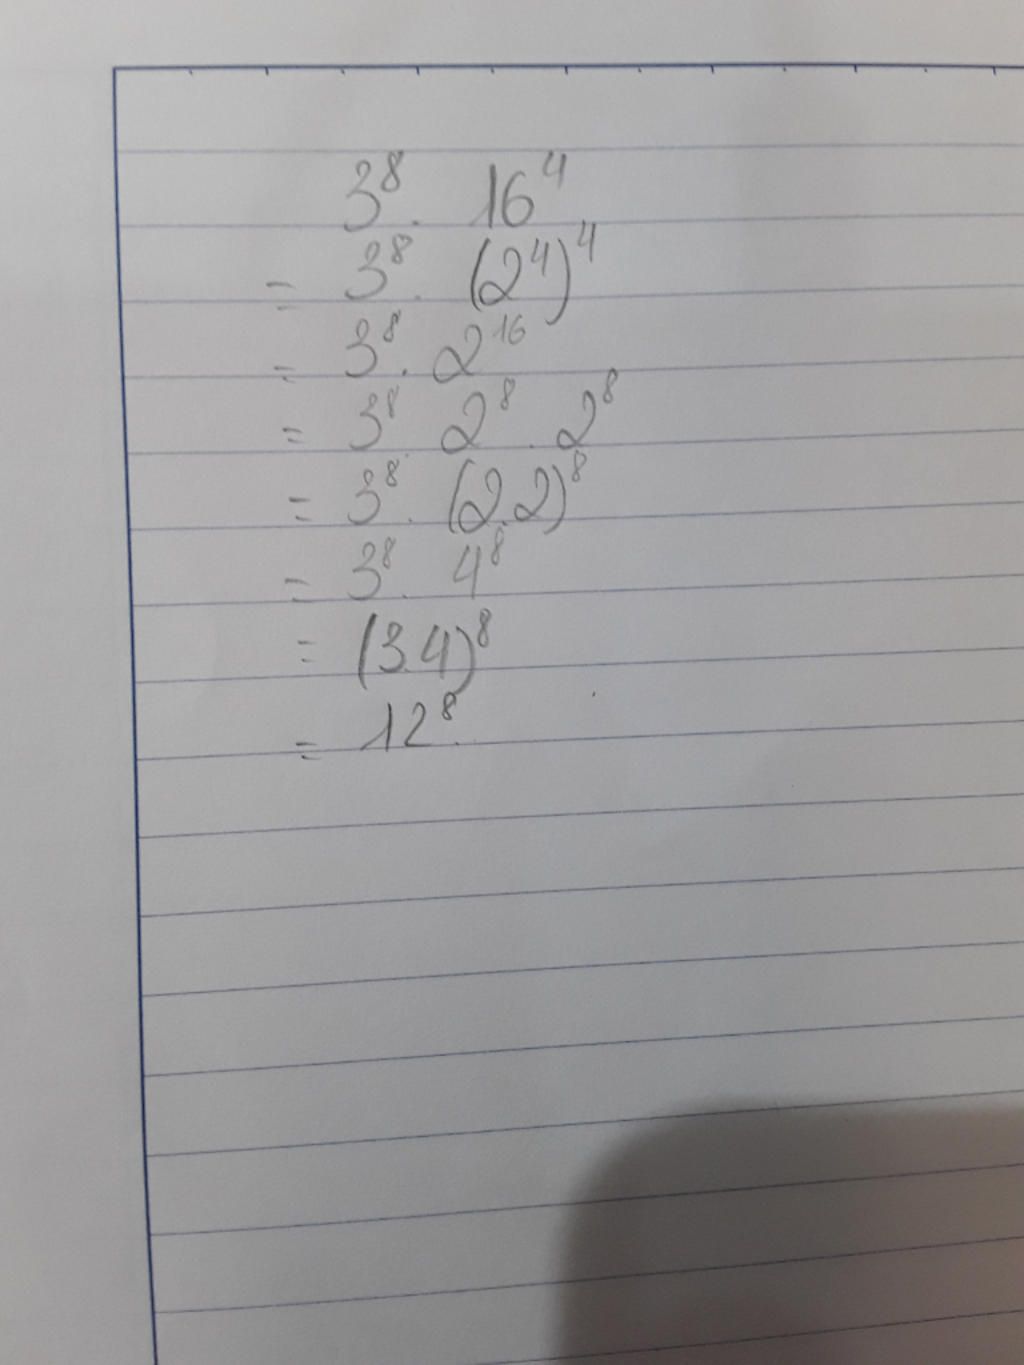 3⁸. 16⁴
= 3⁸. (2⁴)⁴
= 3⁸. 2¹⁶
= 3⁸. 2⁸. 2⁸
= 3⁸. (2.2)⁸
= 3⁸. 4⁸
= (3.4)⁸
= 12⁸.